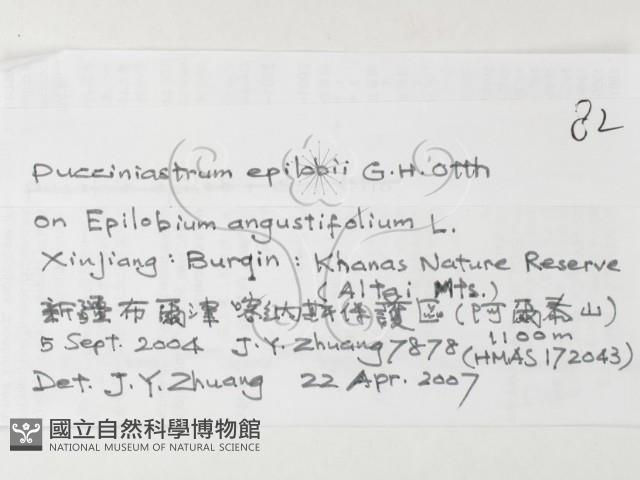 82
Pucciniastrum epilobii G.H.Otth
on Epilobium angustifolium L.
Xinjiang: Burqin: Khanas Nature Reserve
(Altai Mts.)
新疆布爾津喀納斯保護區(阿爾泰山)
1100m
5 Sept. 2004 J.Y.Zhuang 7878 (HMAS 172043)
Det. J.Y.Zhuang 22 Apr. 2007
國立自然科學博物館
NATIONAL MUSEUM OF NATURAL SCIENCE